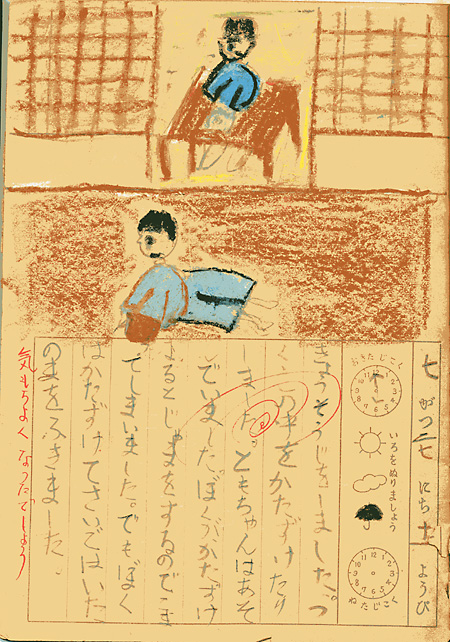 七がつ二七にち土ようび
おきたじこく
いろをぬりましょう
ねたじこく
きょうそうじをしました。つ
くえの中をかたずけたり
しました。ともちゃんはあそ
でいました。ぼくがかたずけ
よるとじゃまをするのでこま
てしまいました。でもぼく
はかたずけてさいごはいた
のまをふきました。
気もちよくなったでしょう